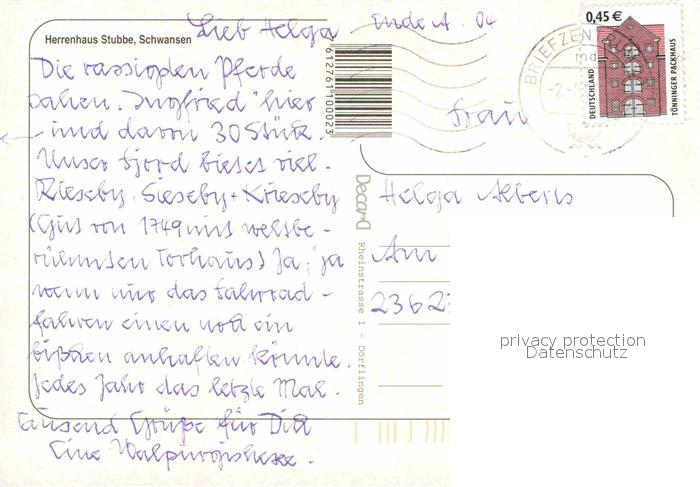 Herrenhaus Stubbe, Schwansen
Lieb Helga Ende A. 04
Die rassigsten Pferde
sahen. Ingfried" hier
- und davon 30 Stück.
Unser Fjord bietet viel.
Rieseby. Sieseby + Krieseby
(Gut von 1749 mit weltbe-
rühmten Torhaus) Ja, ja
wenn nur das Fahrrad-
fahren einen noch ein
bißchen anhalten könnte.
Jedes Jahr das letzte Mal.
Tausend Grüße für Dich
Eine Walpurgishexe.
612761 00023
Decard
Rheinstrasse 1 - Dörflingen
BRIEFZEN
-2.-5
0,45 €
DEUTSCHLAND
TÖNNINGER PACKHAUS
Frau
Helga Alberts
Am
2362
privacy protection
Datenschutz